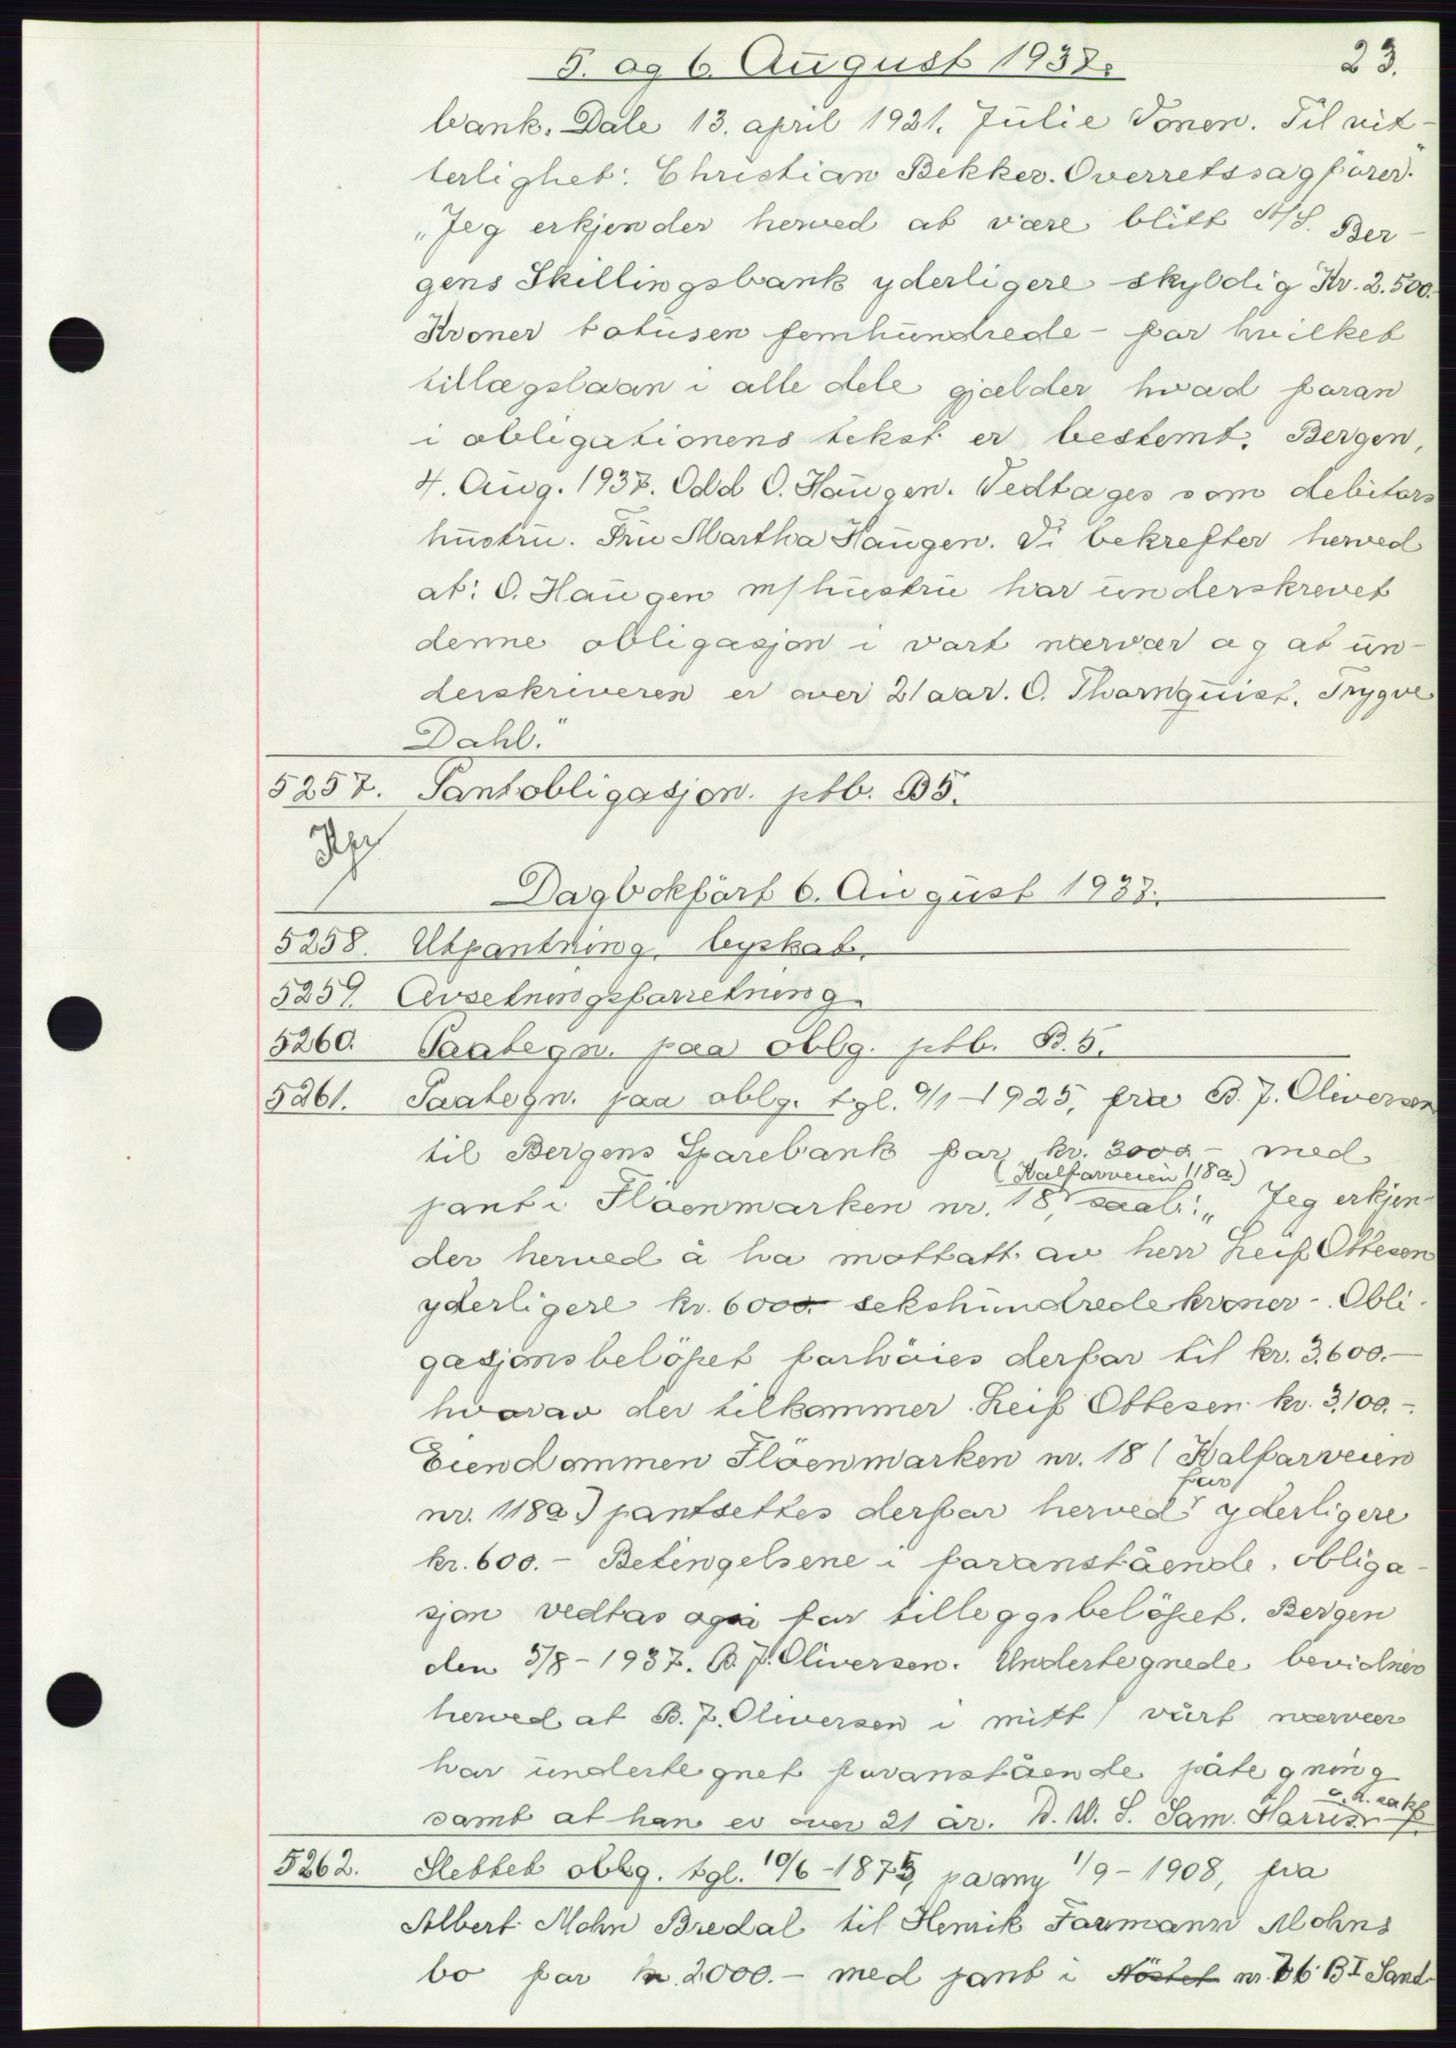 5. og 6. August 1937.
23.
bank. Dale 13. april 1921. Julie Tonen. Til vit-
terlighet: Christian Bekker. Overretssagfører."
"Jeg erkjender herved at være blitt A/S. Ber-
gens Skillingsbank yderligere skyldig Kr. 2.500.-
Kroner totusen femhundrede - for hvilket
tillægslaan i alle dele gjælder hvad foran
i obligationens tekst er bestemt. Bergen,
4. Aug. 1937. Odd O. Haugen. Vedtages som debitors
hustru. Fru Martha Haugen. Vi bekrefter herved
at: O. Haugen m/hustru har underskrevet
denne obligasjon i vort nærvær og at un-
derskriveren er over 21 aar. O. Thornquist. Trygve
Dahl."
5257. Pantobligasjon. ptb. B5.
Dagbokført 6. August 1937.
5258. Utpantning, leyskab.
5259. Avsetningsforretning
5260. Paategn. paa oblg. ptb. B. 5.
5261. Paategn. paa oblg. tgl. 9/1-1925, fra B. J. Oliversen
til Bergens Sparebank for kr. 3000.- med
(Kalfarveien 118a)
pant i Fløenmarken nr. 18, saal: "Jeg erkjen-
der herved å ha mottatt av herr Leif Ottesen
yderligere kr. 600.- sekshundrede kroner -. Obli-
gasjonsbeløpet forhøies derfor til kr. 3.600.-
hvorav der tilkommer Leif Ottesen kr. 3.100.-.
Eiendommen Fløenmarken nr. 18 (Kalfarveien
for
nr. 118a) pantsettes derfor herved yderligere
kr. 600.- Betingelsene i foranstående obliga-
sjon vedtas også for tilleggsbeløpet. Bergen
den 5/8-1937. B. J. Oliversen. Undertegnede bevidner
herved at B. J. Oliversen i mitt / vårt nærvær
har undertegnet foranstående påtegning
samt at han er over 21 år. D. W. S. Sam. Harris
5262. Slettet oblg. tgl. 10/6-1875, paany 1/9-1908, fra
Albert Mohn Bredal til Henrik Formann Mohns
bo for kr. 2000.- med pant i Nöstet nr. 76 BI Sand-